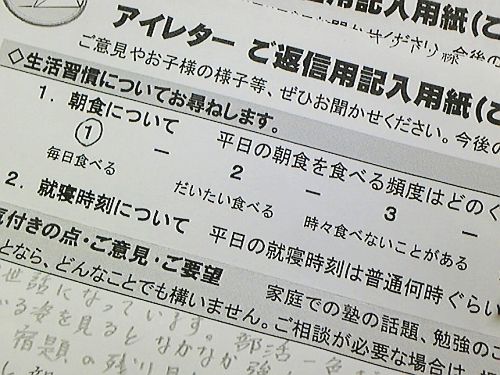 アイレター ご返信用記入用紙(ご
ご意見やお子様の様子等、ぜひお聞かせください。今後の
◇生活習慣についてお尋ねします。
1. 朝食について 平日の朝食を食べる頻度はどのく
1 － 2 － 3 －
毎日食べる だいたい食べる 時々食べないことがある
2. 就寝時刻について 平日の就寝時刻は普通何時ぐらい
気付きの点・ご意見・ご要望 家庭での塾の話題、勉強のこ
となら、どんなことでも構いません。ご相談が必要な場合は、
世話になっています。部活一色
いる者を見るとなかなか
宿題の残り